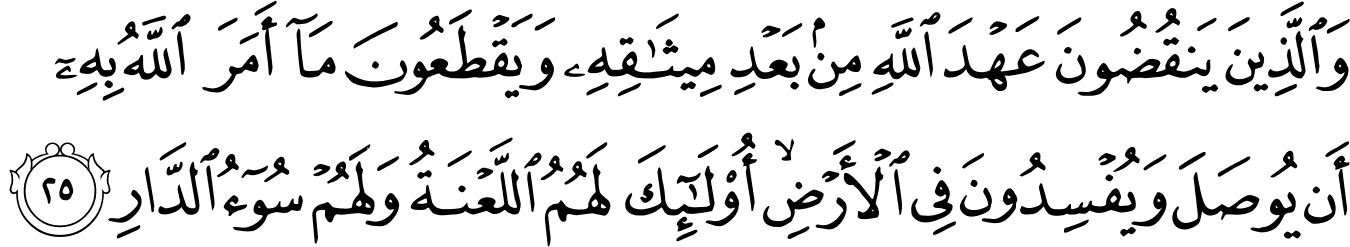 وَٱلَّذِينَ يَنقُضُونَ عَهْدَ ٱللَّهِ مِنۢ بَعْدِ مِيثَـٰقِهِۦ وَيَقْطَعُونَ مَآ أَمَرَ ٱللَّهُ بِهِۦٓ
أَن يُوصَلَ وَيُفْسِدُونَ فِى ٱلْأَرْضِ ۙ أُو۟لَـٰٓئِكَ لَهُمُ ٱللَّعْنَةُ وَلَهُمْ سُوٓءُ ٱلدَّارِ ٢٥